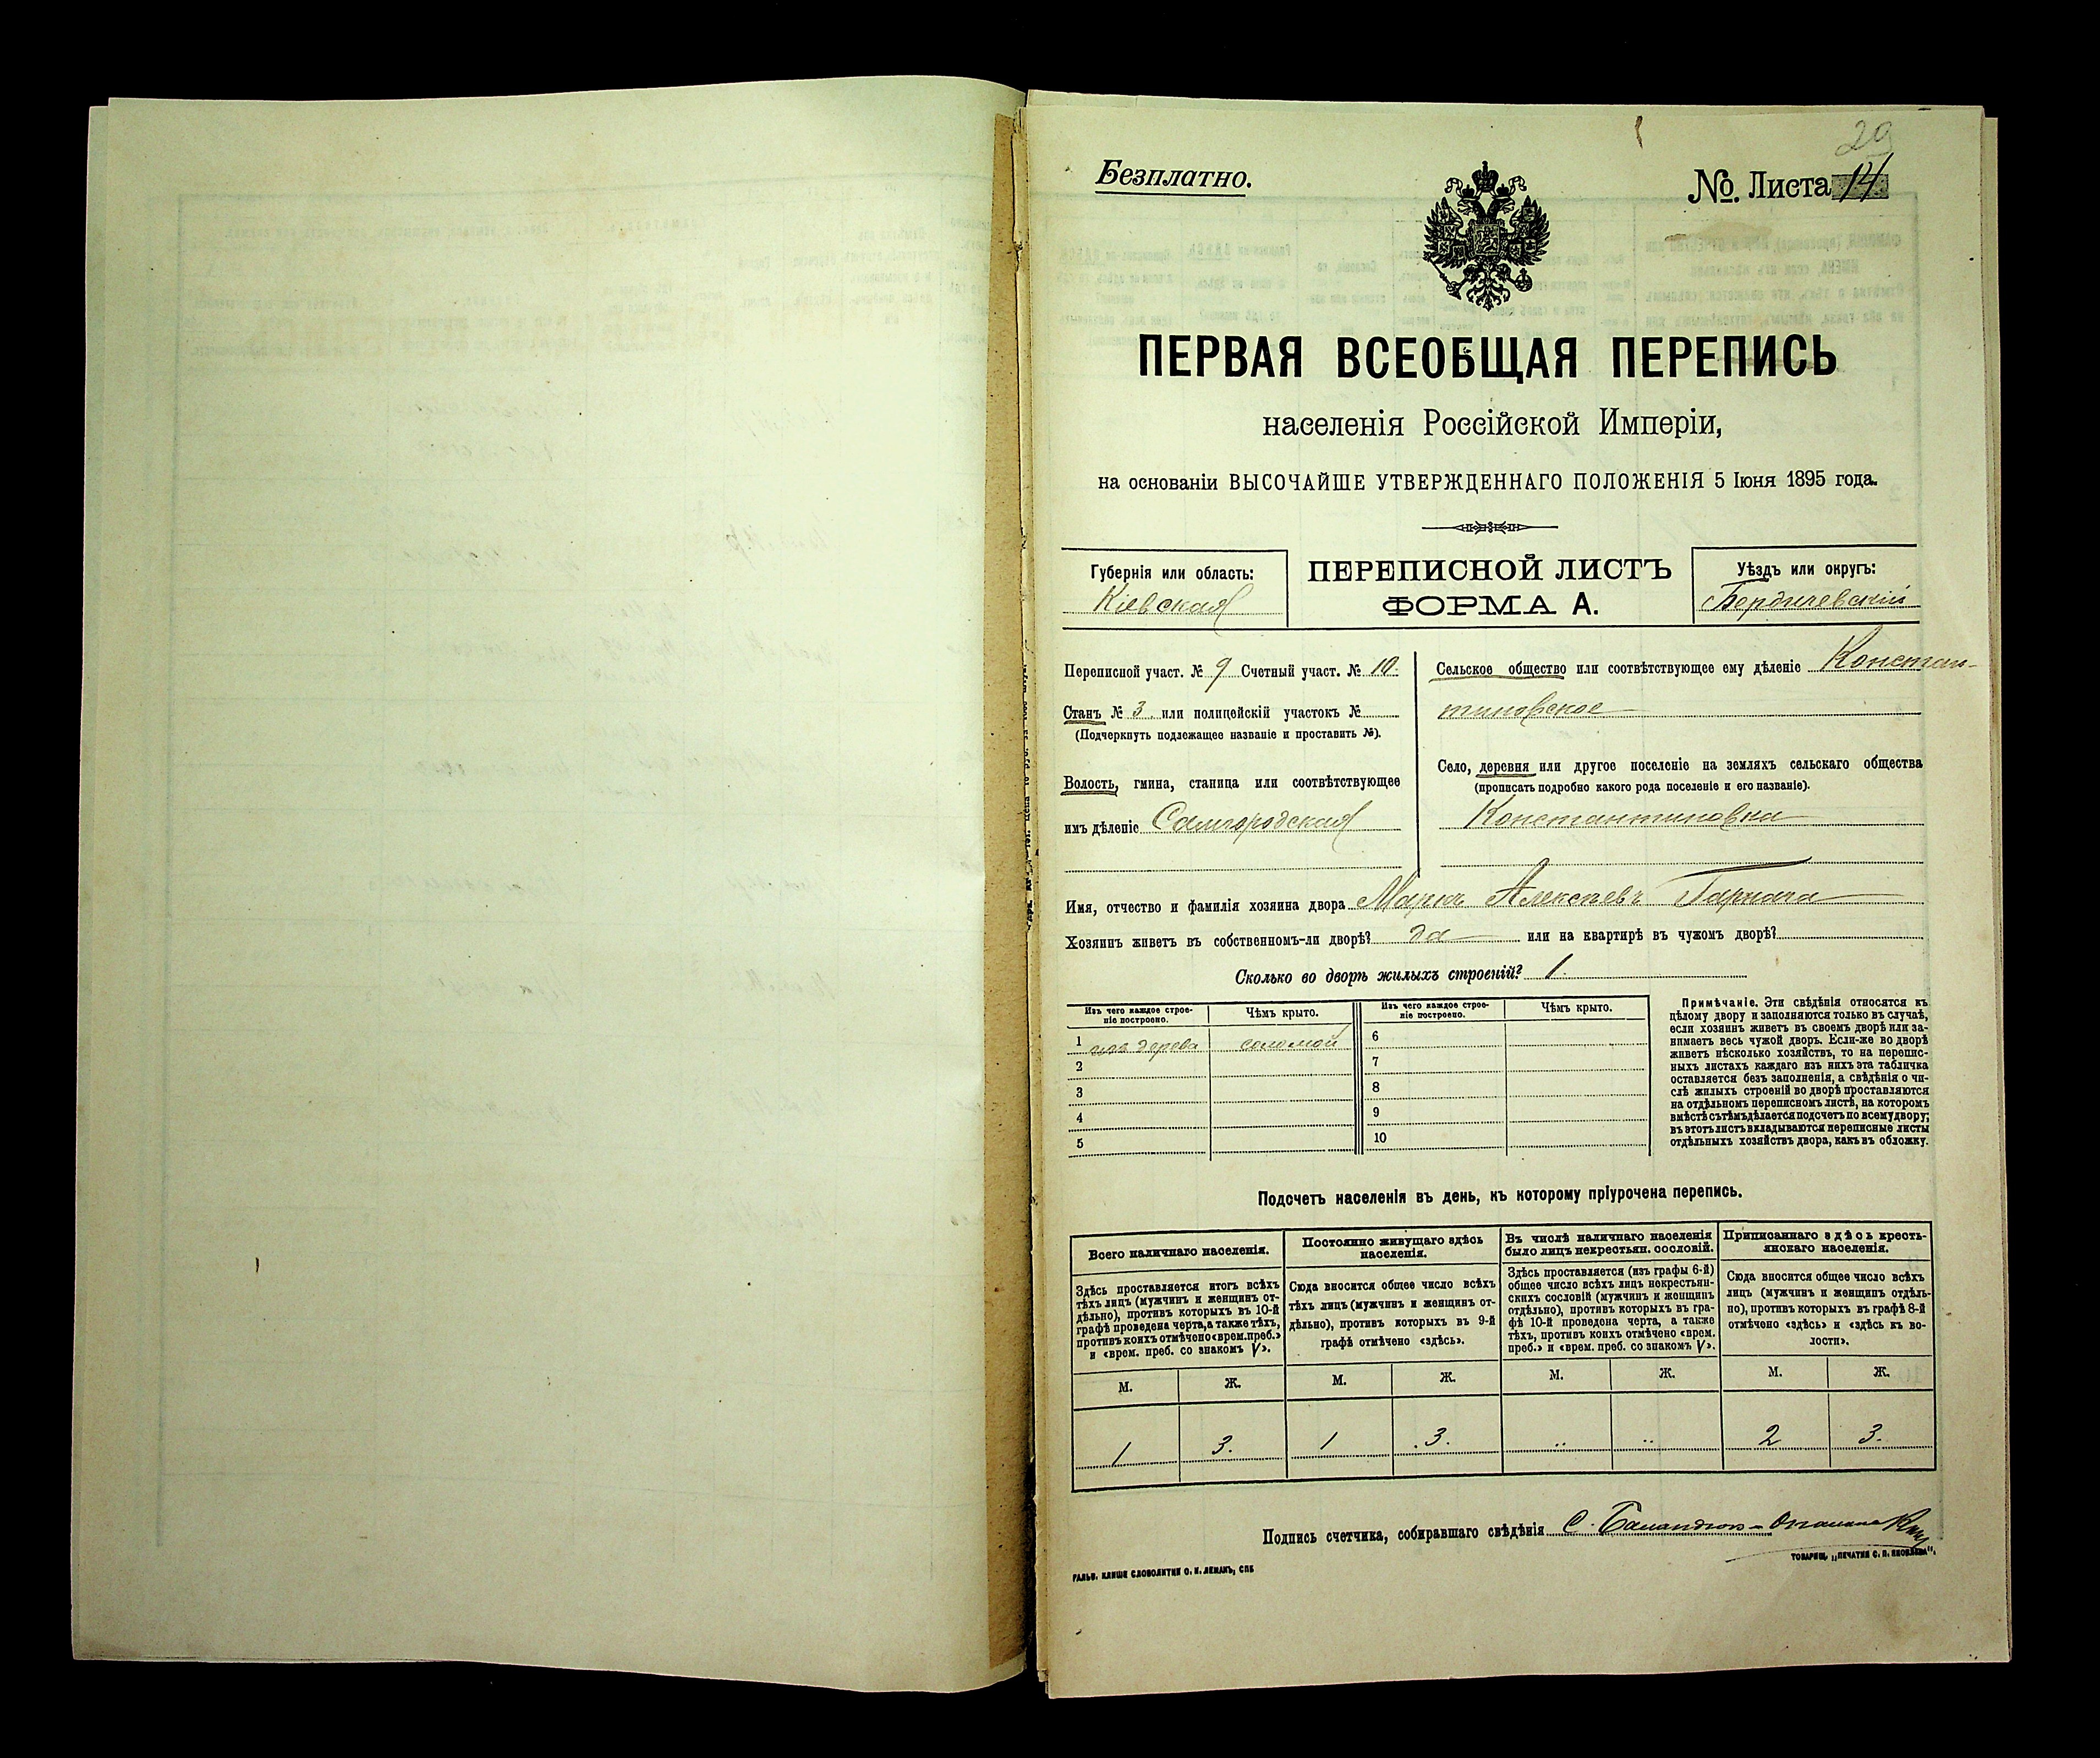 29
Безплатно.
№. Листа 14
ПЕРВАЯ ВСЕОБЩАЯ ПЕРЕПИСЬ
населенія Россійской Имперіи,
на основаніи ВЫСОЧАЙШЕ УТВЕРЖДЕННАГО ПОЛОЖЕНІЯ 5 Іюня 1895 года.
Губернія или область:
Кіевская
ПЕРЕПИСНОЙ ЛИСТЪ
ФОРМА А.
Уѣздъ или округъ:
Бердичевскій
Переписной участ. № 9 Счетный участ. № 10.
Станъ № 3 или полицейскій участокъ №
(Подчеркнуть подлежащее названіе и проставить №).
Волость, гмина, станица или соотвѣтствующее
имъ дѣленіе Самгородская
Сельское общество или соотвѣтствующее ему дѣленіе Констан-
тиновское
Село, деревня или другое поселеніе на земляхъ сельскаго общества
(прописать подробно какого рода поселеніе и его названіе).
Константиновка
Имя, отчество и фамилія хозяина двора Маркъ Алексѣевъ Гармата
Хозяинъ живетъ въ собственномъ-ли дворѣ? да или на квартирѣ въ чужомъ дворѣ?
Сколько во дворѣ жилыхъ строеній? 1.
Изъ чего каждое строе-
ніе построено.
Чѣмъ крыто.
Изъ чего каждое строе-
ніе построено.
Чѣмъ крыто.
1 изъ дерева соломой
2
3
4
5
6
7
8
9
10
Примѣчаніе. Эти свѣдѣнія относятся къ
цѣлому двору и заполняются только въ случаѣ,
если хозяинъ живетъ въ своемъ дворѣ или за-
нимаетъ весь чужой дворъ. Если-же во дворѣ
живетъ нѣсколько хозяйствъ, то на перепис-
ныхъ листахъ каждаго изъ нихъ эта табличка
оставляется безъ заполненія, а свѣдѣнія о чи-
слѣ жилыхъ строеній во дворѣ проставляются
на отдѣльномъ переписномъ листѣ, на которомъ
вмѣстѣ съ тѣмъ дѣлается подсчетъ по всему двору;
въ этотъ листъ вкладываются переписные листы
отдѣльныхъ хозяйствъ двора, какъ въ обложку.
Подсчетъ населенія въ день, къ которому пріурочена перепись.
Всего наличнаго населенія.
Здѣсь проставляется итогъ всѣхъ
тѣхъ лицъ (мужчинъ и женщинъ от-
дѣльно), противъ которыхъ въ 10-й
графѣ проведена черта, а также тѣхъ,
противъ коихъ отмѣчено «врем. преб.»
и «врем. преб. со знакомъ V».
Постоянно живущаго здѣсь
населенія.
Сюда вносится общее число всѣхъ
тѣхъ лицъ (мужчинъ и женщинъ от-
дѣльно), противъ которыхъ въ 9-й
графѣ отмѣчено «здѣсь».
Въ числѣ наличнаго населенія
было лицъ некрестьян. сословій.
Здѣсь проставляется (изъ графы 6-й)
общее число всѣхъ лицъ некрестьян-
скихъ сословій (мужчинъ и женщинъ
отдѣльно), противъ которыхъ въ гра-
фѣ 10-й проведена черта, а также
тѣхъ, противъ коихъ отмѣчено «врем.
преб.» и «врем. преб. со знакомъ V».
Приписаннаго здѣсь кресть-
янскаго населенія.
Сюда вносится общее число всѣхъ
лицъ (мужчинъ и женщинъ отдѣль-
но), противъ которыхъ въ графѣ 8-й
отмѣчено «здѣсь» и «здѣсь къ во-
лости».
М. Ж. М. Ж. М. Ж. М. Ж.
1 3. 1 3. „ „ 2 3.
Подпись счетчика, собиравшаго свѣдѣнія С.
ГАЛЬВ. КЛИШЕ СЛОВОЛИТНИ О. И. ЛЕМАНЪ, СПБ
ТОВАРИЩ. „ПЕЧАТНЯ С. П. ЯКОВЛЕВА“.